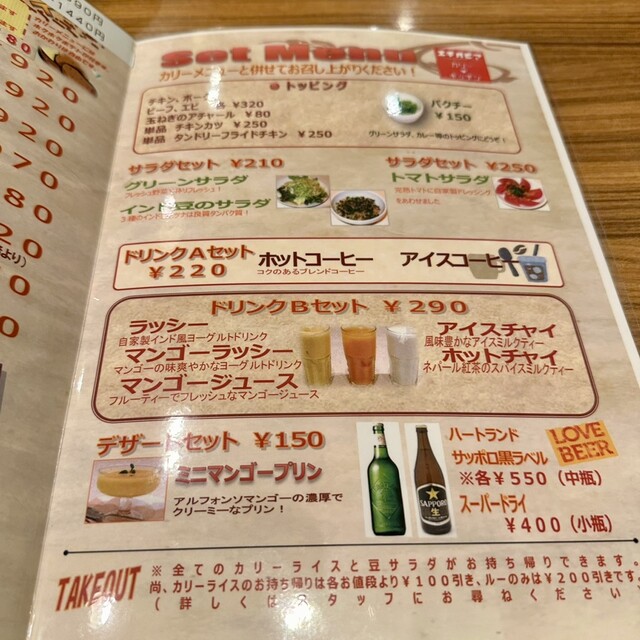 1440円
920
920
920
970
80
20
Set Menu
エチオピア
カリーメニューと併せてお召し上がりください！
トッピング
ビーフ、エビ 各 ¥320
玉ねぎのアチャール ¥80
単品 チキンカツ ¥250
単品 タンドリーフライドチキン ¥250
パクチー
¥150
グリーンサラダ、カレー等のトッピングにどうぞ！
サラダセット ¥210
グリーンサラダ
インド豆のサラダ
3種のインド
は良質タンパク質！
サラダセット ¥250
トマトサラダ
完熟トマトに自家製ドレッシング
をあわせました
ドリンクAセット
¥220
ホットコーヒー
コクのあるブレンドコーヒー
アイスコーヒー
ドリンクBセット ¥290
ラッシー
自家製インド風ヨーグルトドリンク
マンゴーラッシー
マンゴーの味爽やかなヨーグルトドリンク
マンゴージュース
フルーティーでフレッシュなマンゴージュース
アイスチャイ
風味豊かなアイスミルクティー
ホットチャイ
ネパール紅茶のスパイスミルクティー
デザートセット ¥150
ミニマンゴープリン
アルフォンソマンゴーの濃厚で
クリーミーなプリン！
ハートランド
サッポロ黒ラベル
※各¥550（中瓶）
スーパードライ
¥400（小瓶）
LOVE
BEER
SAPPORO
生
TAKEOUT
※全てのカリーライスと豆サラダがお持ち帰りできます。
尚、カリーライスのお持ち帰りは各お値段より¥100引き、ルーのみは¥200引きです。
（詳しくはスタッフにお尋ねください）